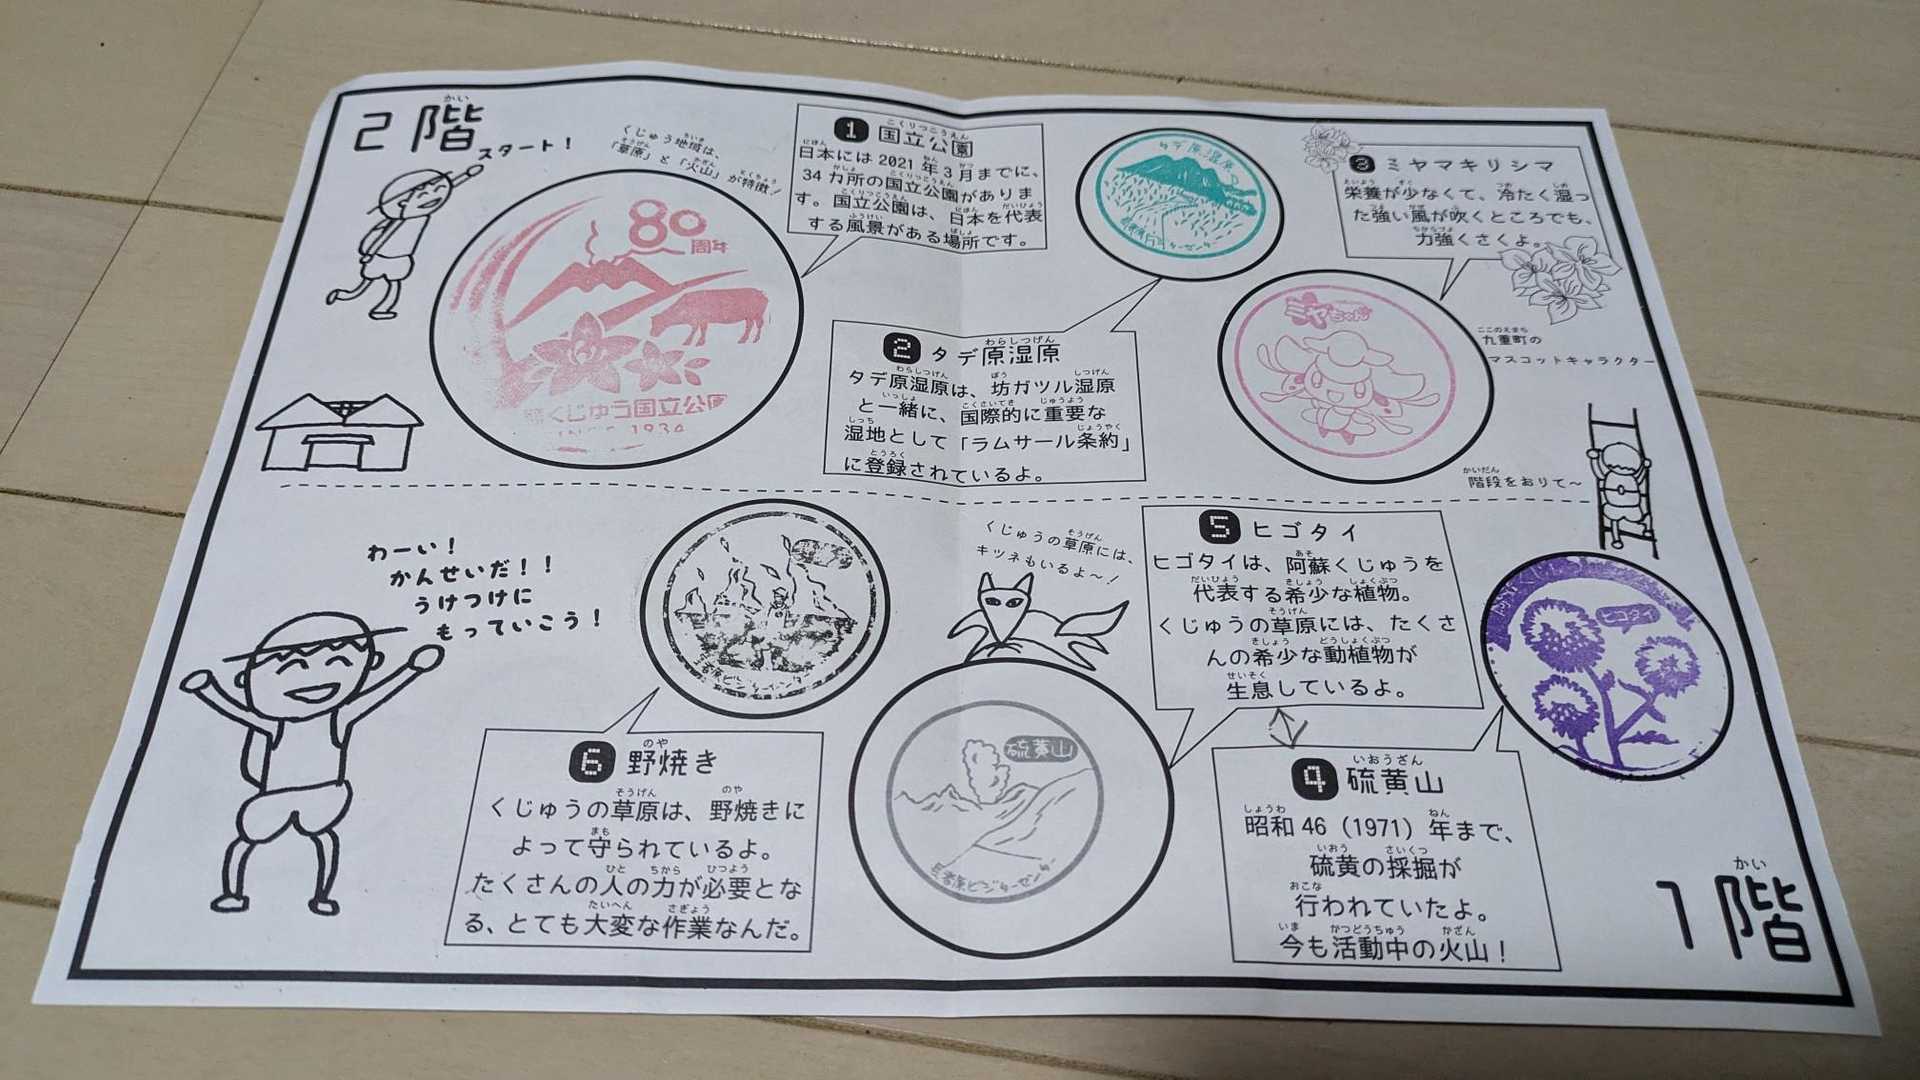 2階
スタート！
くじゅう地域は、
「草原」と「火山」が特徴！
80
周年
くじゅう国立公園
SINCE 1934
1 国立公園
日本には 2021 年 3 月までに、
34 カ所の国立公園がありま
す。国立公園は、日本を代表
する風景がある場所です。
タデ原湿原
長者原ビジターセンター
2 タデ原湿原
タデ原湿原は、坊ガツル湿原
と一緒に、国際的に重要な
湿地として「ラムサール条約」
に登録されているよ。
3 ミヤマキリシマ
栄養が少なくて、冷たく湿っ
た強い風が吹くところでも、
力強くさくよ。
ミヤちゃん
九重町の
マスコットキャラクター
階段をおりて～
わーい！
かんせいだ！！
うけつけに
もっていこう！
くじゅうの草原には、
キツネもいるよ～！
5 ヒゴタイ
ヒゴタイは、阿蘇くじゅうを
代表する希少な植物。
くじゅうの草原には、たくさ
んの希少な動植物が
生息しているよ。
ヒゴタイ
6 野焼き
くじゅうの草原は、野焼きに
よって守られているよ。
たくさんの人の力が必要とな
る、とても大変な作業なんだ。
長者原ビジターセンター
硫黄山
長者原ビジターセンター
4 硫黄山
昭和 46（1971）年まで、
硫黄の採掘が
行われていたよ。
今も活動中の火山！
1階